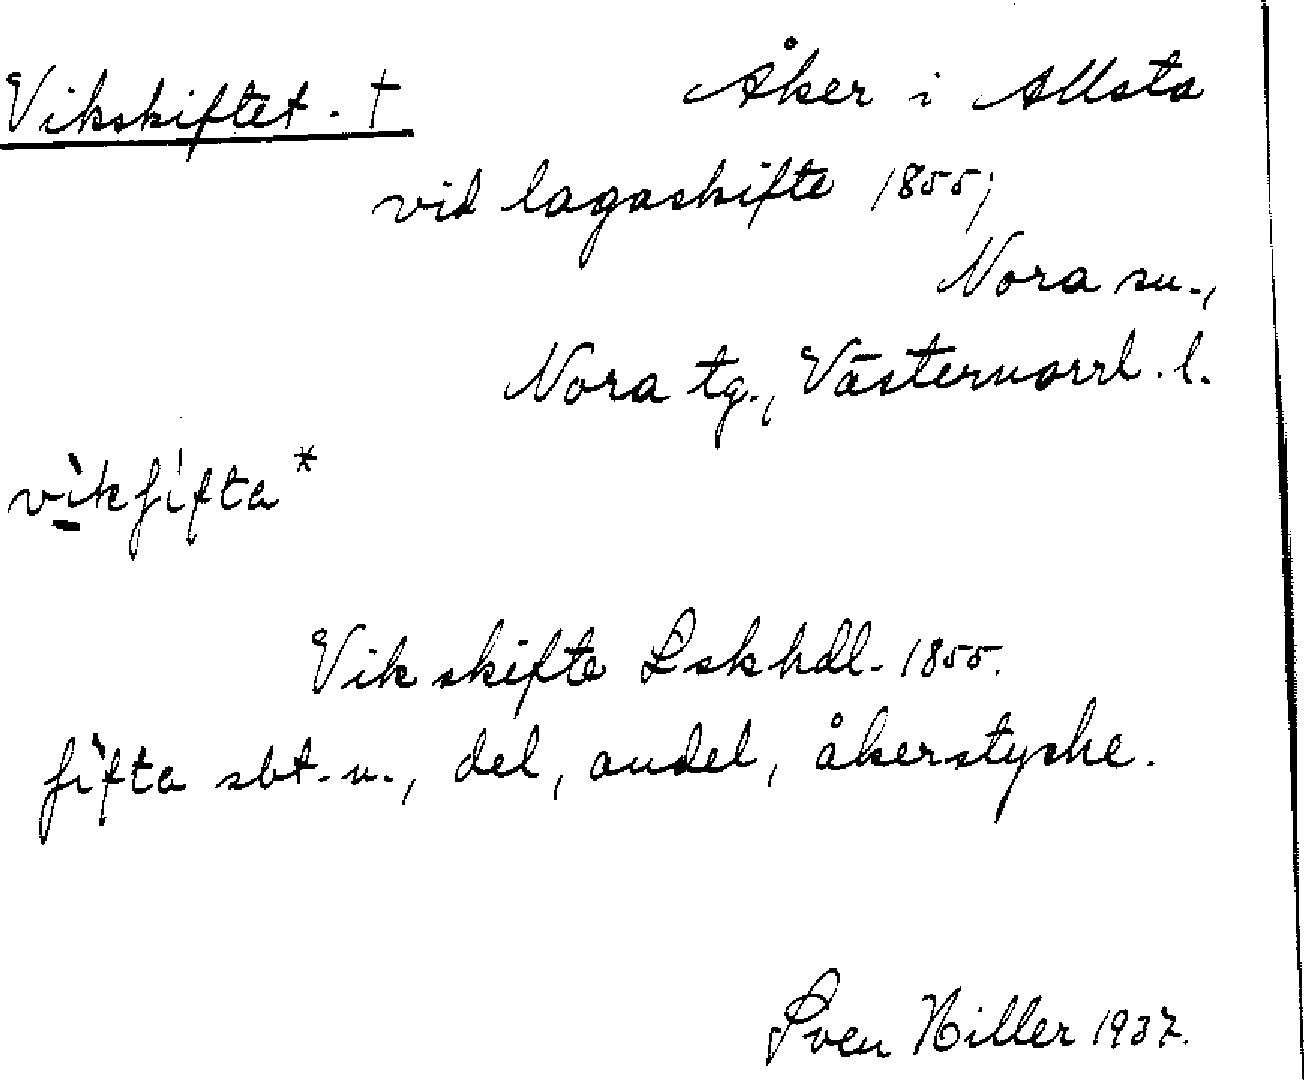 Vikskiftet. † Åker i Allsta
vid lagaskifte 1855;
Nora sn.,
Nora tg., Västernorrl. l.
vìkʃifta*
Vikskifte Lskhdl. 1855.
ʃìfta sbt. n., del, andel, åkerstycke.
Sven Hiller 1937.